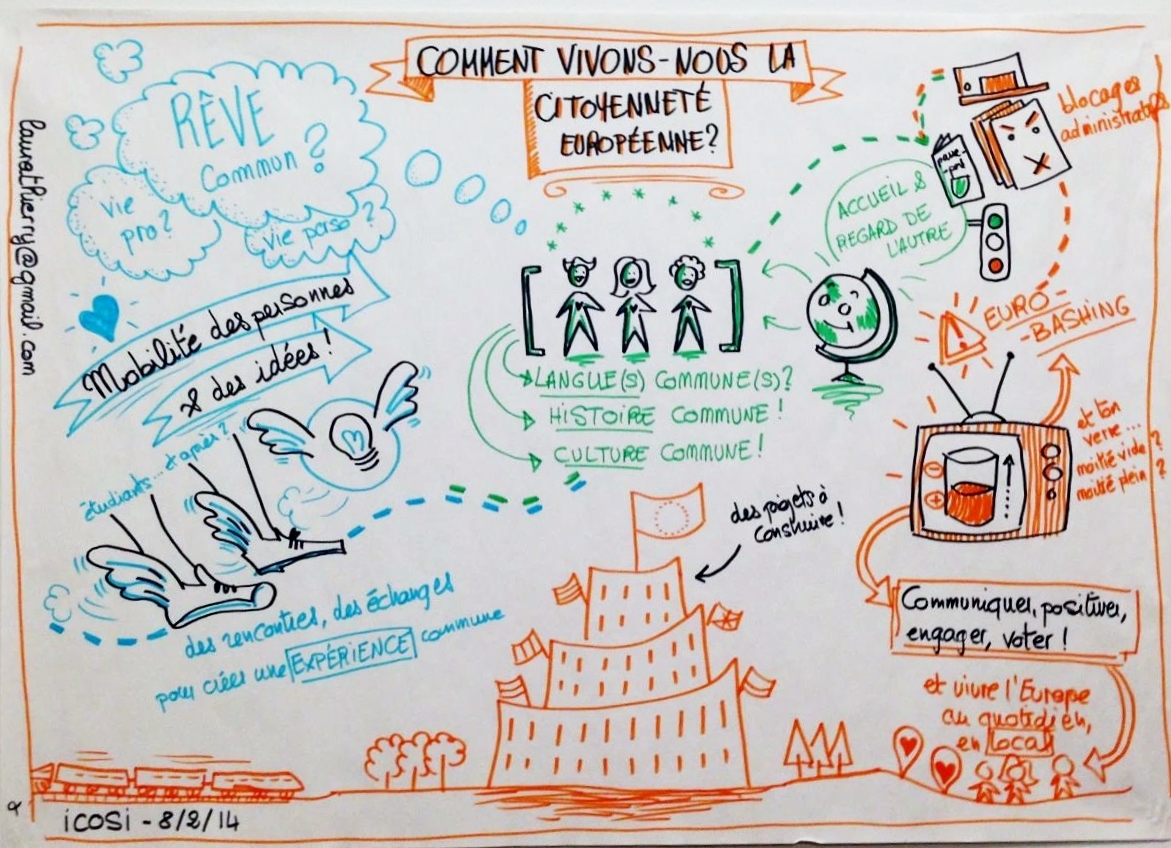 COMMENT VIVONS-NOUS LA
CITOYENNETÉ
EUROPÉENNE?
RÊVE
Commun ?
vie
pro?
vie perso ?
Mobilité des personnes
& des idées !
étudiants... et après ?
des rencontres, des échanges
pour créer une EXPÉRIENCE commune
LANGUE(S) COMMUNE(S)?
HISTOIRE COMMUNE !
CULTURE COMMUNE !
ACCUEIL &
REGARD DE
L'AUTRE
blocages
administratifs
EURO-
-BASHING
et ton
verre...
moitié vide ?
moitié plein ?
des projets à
construire !
Communiquer, positiver,
engager, voter !
et vivre l'Europe
au quotidien,
en local
lauratPierry@gmail.com
icosi - 8/2/14